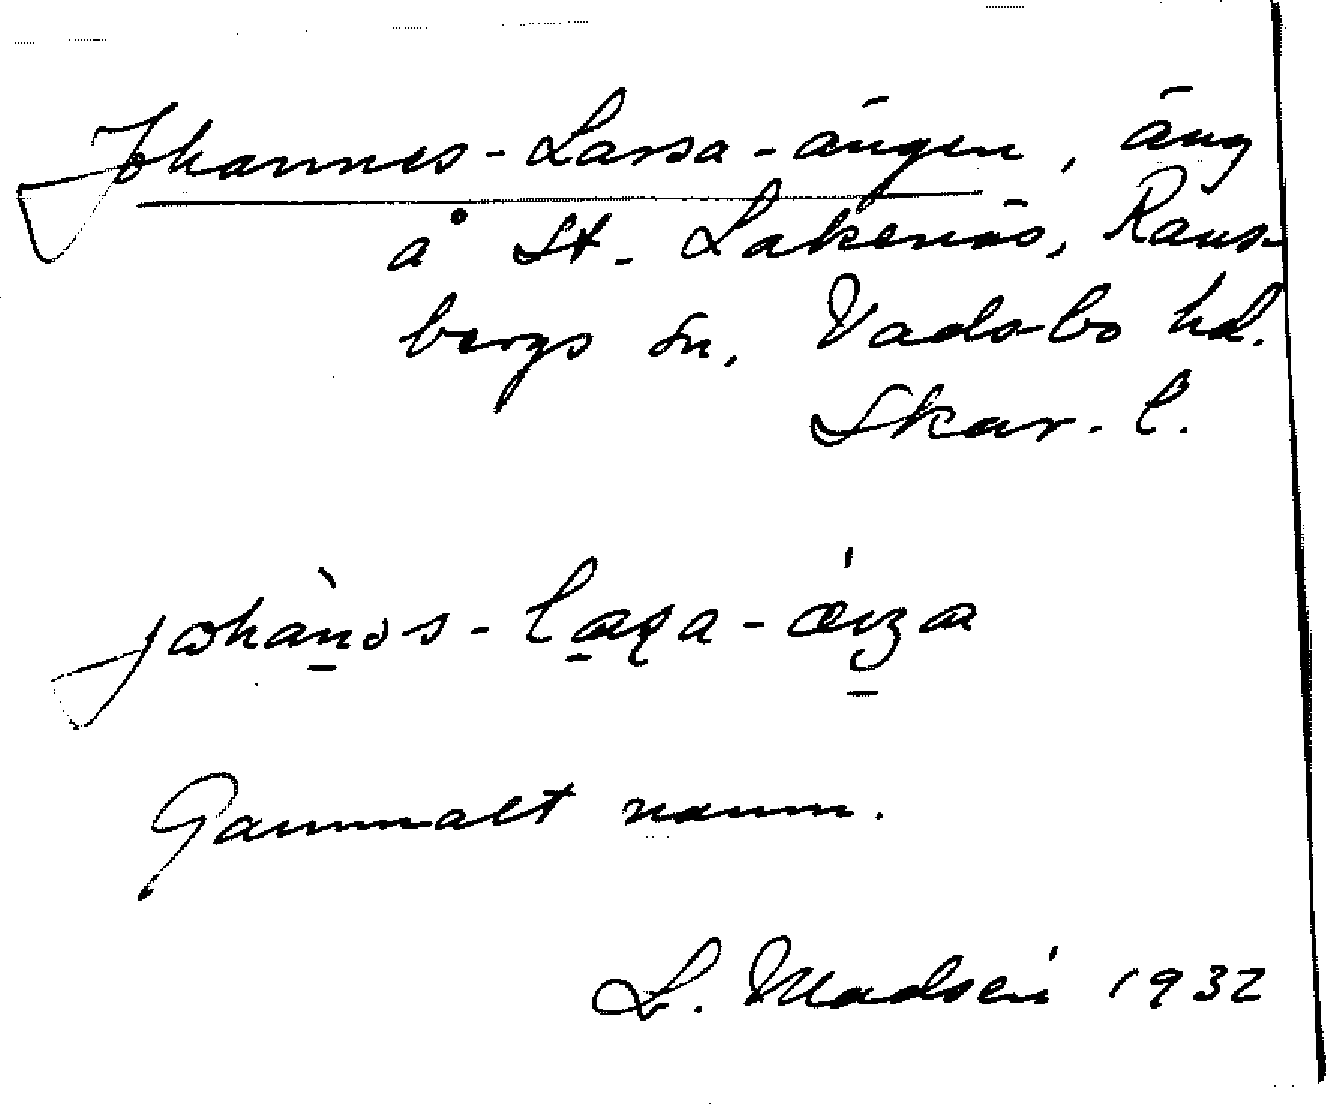 Johannes-Larsa-ängen, äng
å St. Lakenäs, Rans-
bergs sn, Vadsbo hd.
Skar. l.
Gammalt namn.
L. Madsén 1932